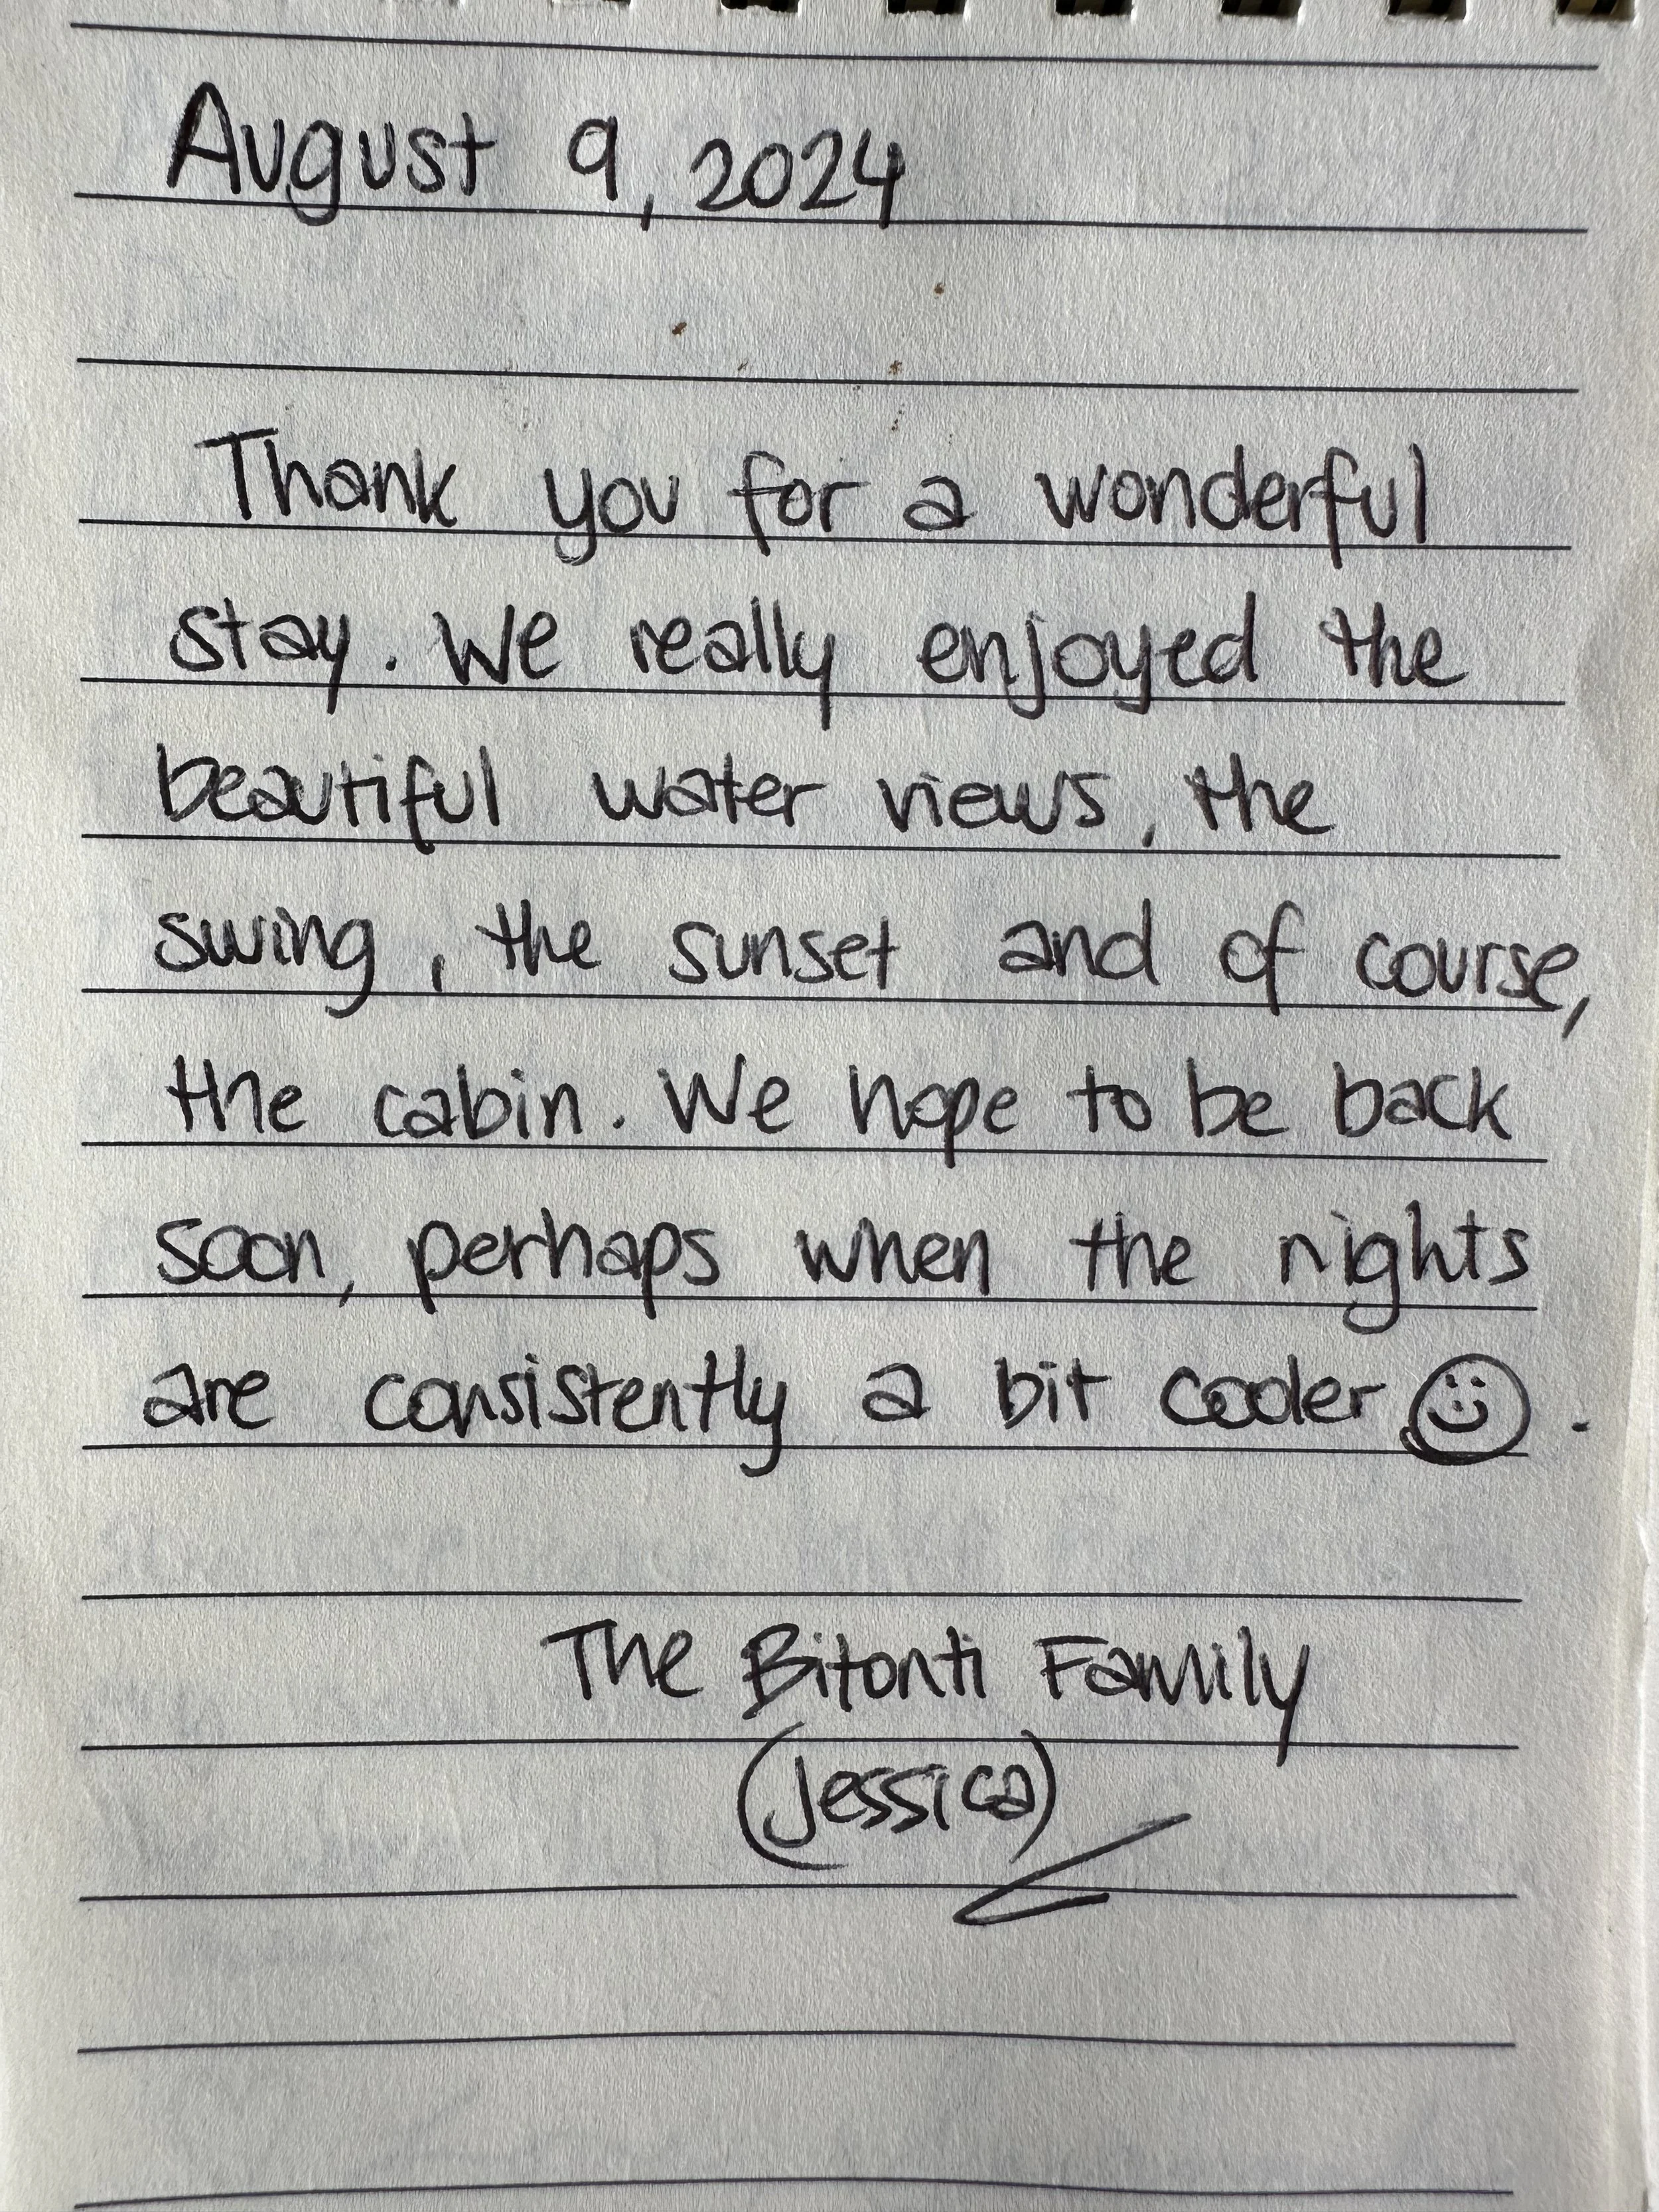 August 9, 2024
Thank you for a wonderful
stay. We really enjoyed the
beautiful water views, the
swing, the sunset and of course,
the cabin. We hope to be back
soon, perhaps when the nights
are consistently a bit cooler☺.
The Bitonti Family
(Jessica)